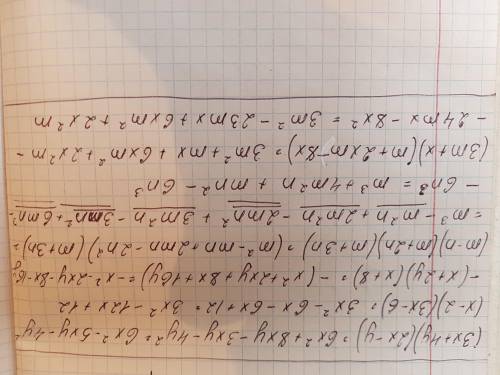 (3x+4y)(2x-y)=6x²+8xy-3xy-4y²=6x²-5xy-4y²
(x-2)(3x-6)=3x²-6x-6x+12=3x²-12x+12
-(x+2y)(x+8)=-(x²+2xy+8x+16y)=-x²-2xy-8x-16y
(m-n)(m+2n)(m+3n)=(m²-mn+2mn-2n²)(m+3n)=
=m³-m²n+2m²n-2mn²+3m²n-3mn²+6mn²-
-6n³=m³+4m²n+mn²-6n³
(3m+x)(m+2xm-8x)=3m²+mx+6xm²+2x²m-
-24mx-8x²=3m²-23mx+6xm²+2x²m